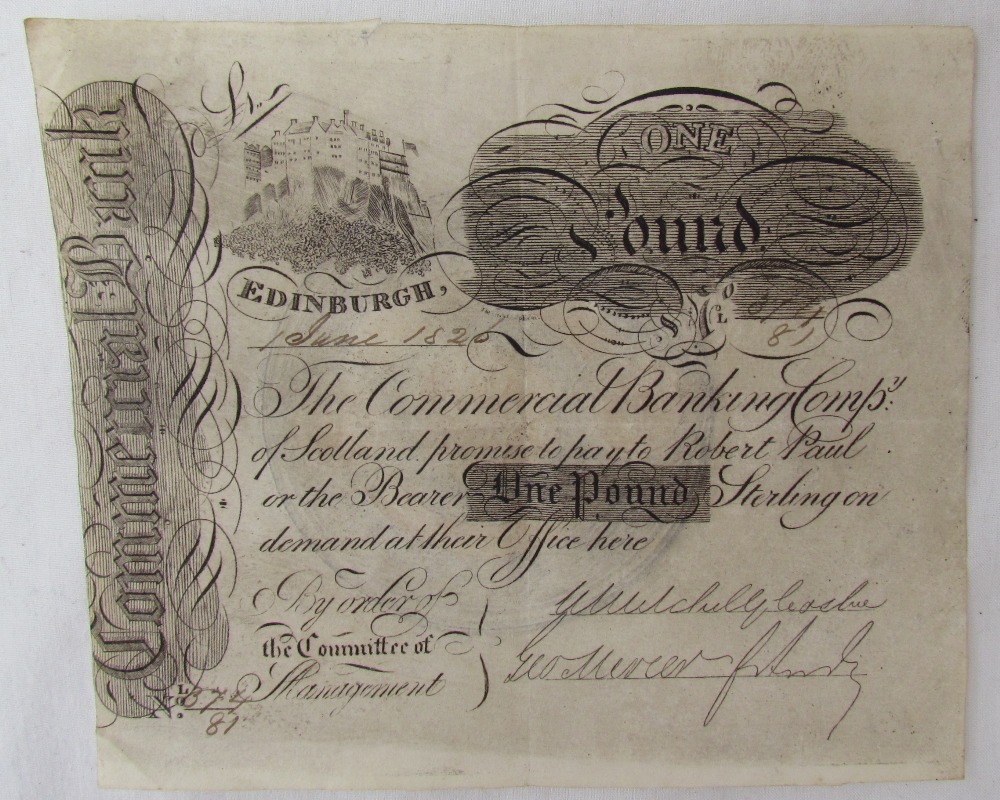 Commercial Bank
ONE
Pound
EDINBURGH,
1 June 182
The Commercial Banking Comp.y
of Scotland promise to pay to Robert Paul
or the Bearer One Pound Sterling on
demand at their Office here
By order of
the Committee of
Management
G Mitchell Cashr
Geo Mercer
No. 374
81